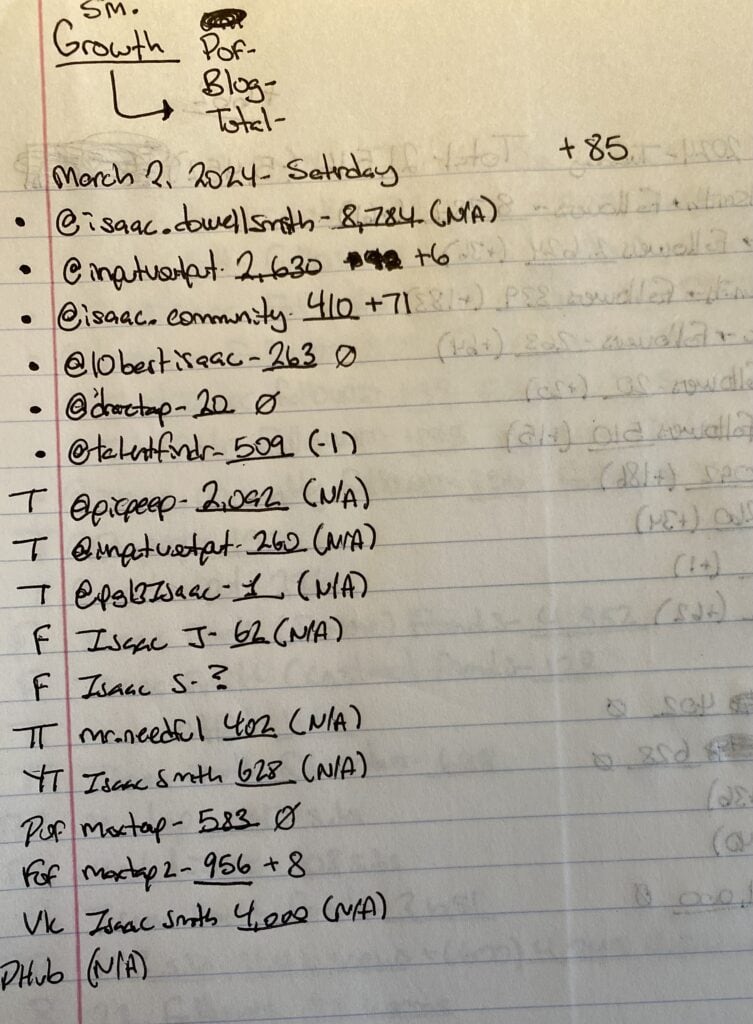 SM.
Growth
Pof-
Blog-
Total-
+85
March 2, 2024- Satrday
• @isaac.dowellsmth- 8,784 (N/A)
• @inputuotput- 2,630 +6
• @isaac.community- 410 +71
• @10bertisaac- 263 Ø
• 20 Ø
• @talentfindr- 509 (-1)
T @picpeep- 2,092 (N/A)
T @inputuotput- 260 (N/A)
T @pgl3Isaac- 1 (N/A)
F Isaac J- 62 (N/A)
F Isaac S- ?
TT mr.needful 402 (N/A)
YT Isaac Smth 628 (N/A)
Pof moctap- 583 Ø
Fof moctap2- 956 +8
Vk Isaac Smth 4,000 (N/A)
PHub (N/A)